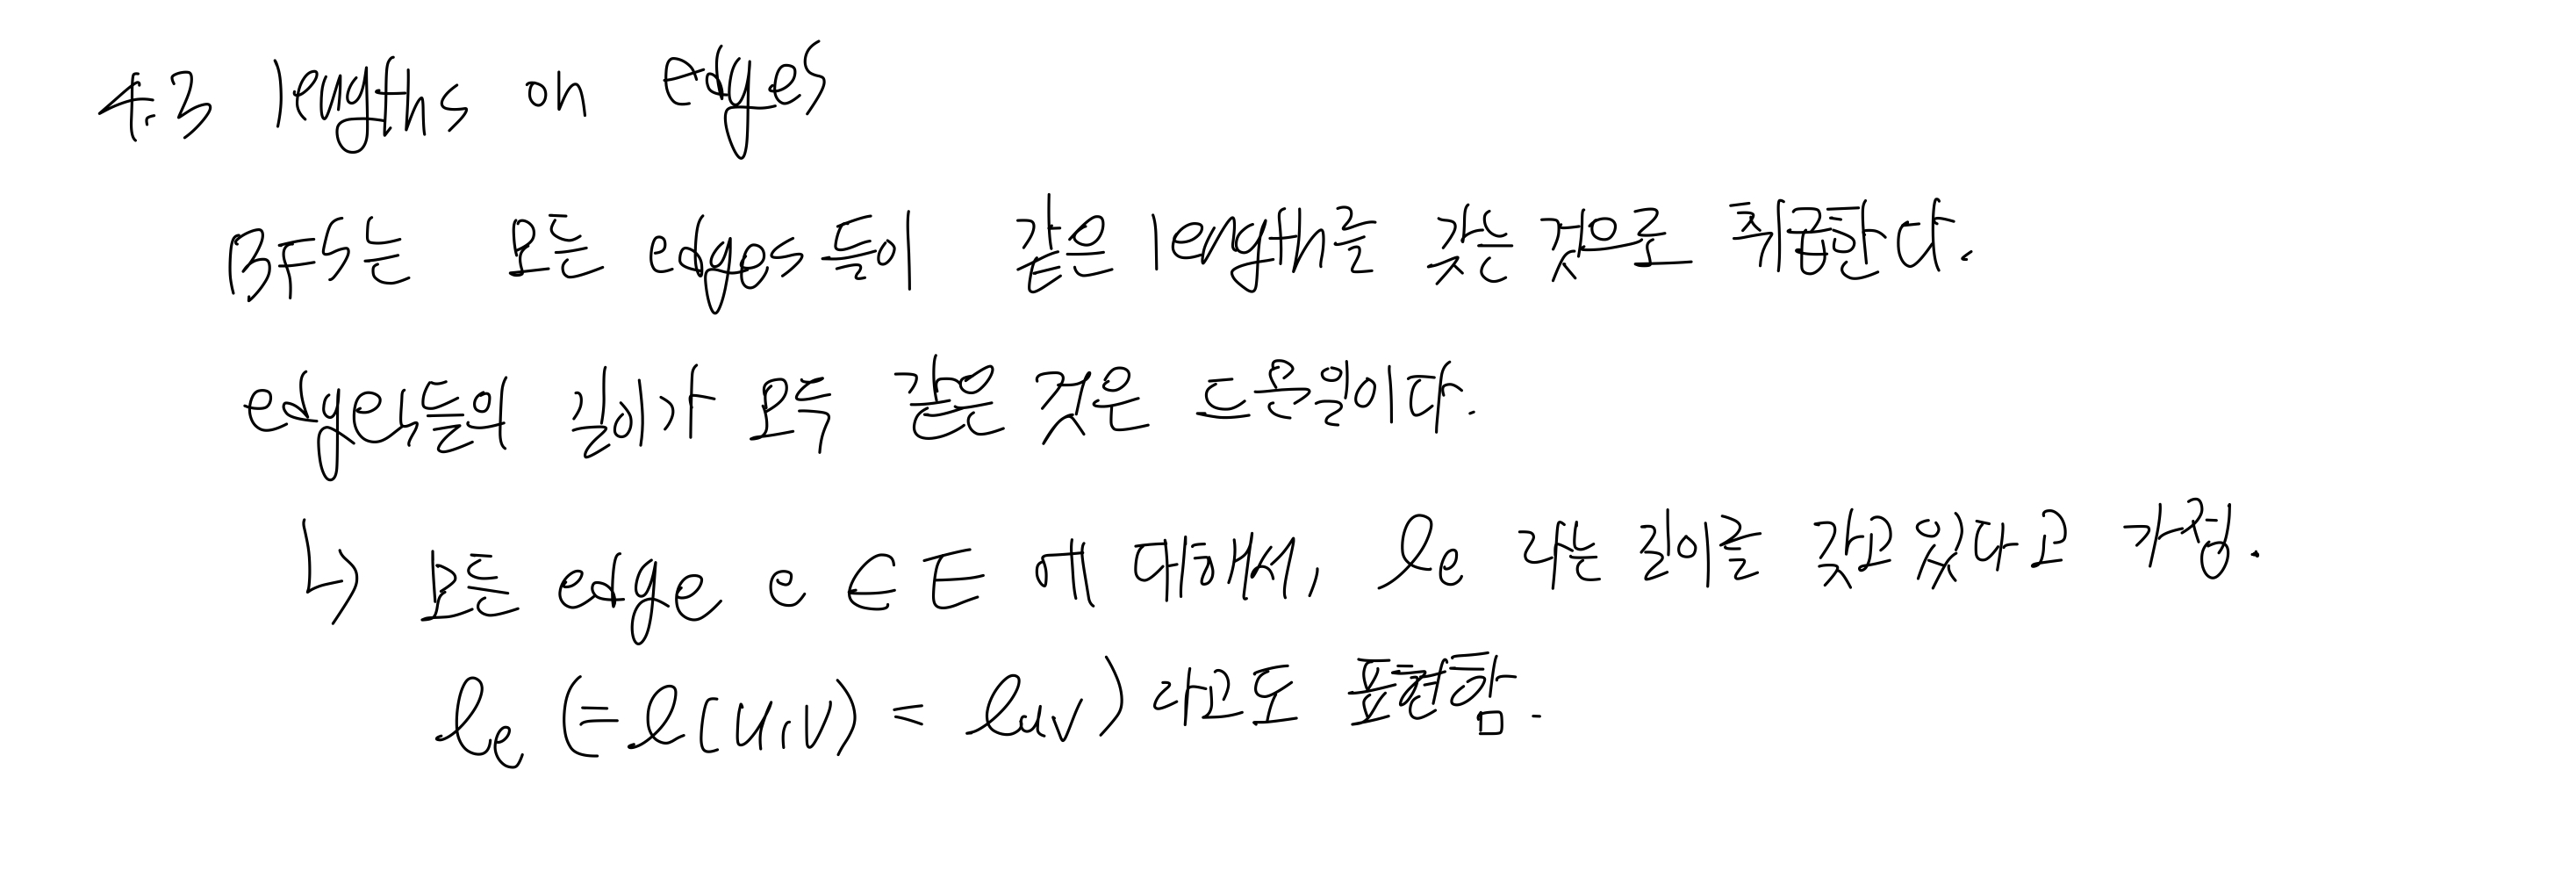 4.3 lengths on edges
BFS는 모든 edges들이 같은 length를 갖는 것으로 취급한다.
edges들의 길이가 모두 같은 것은 드문일이다.
↳ 모든 edge e ∈ E 에 대해서, lₑ 라는 길이를 갖고 있다고 가정.
lₑ (= l(u,v) = luv) 라고도 표현함.